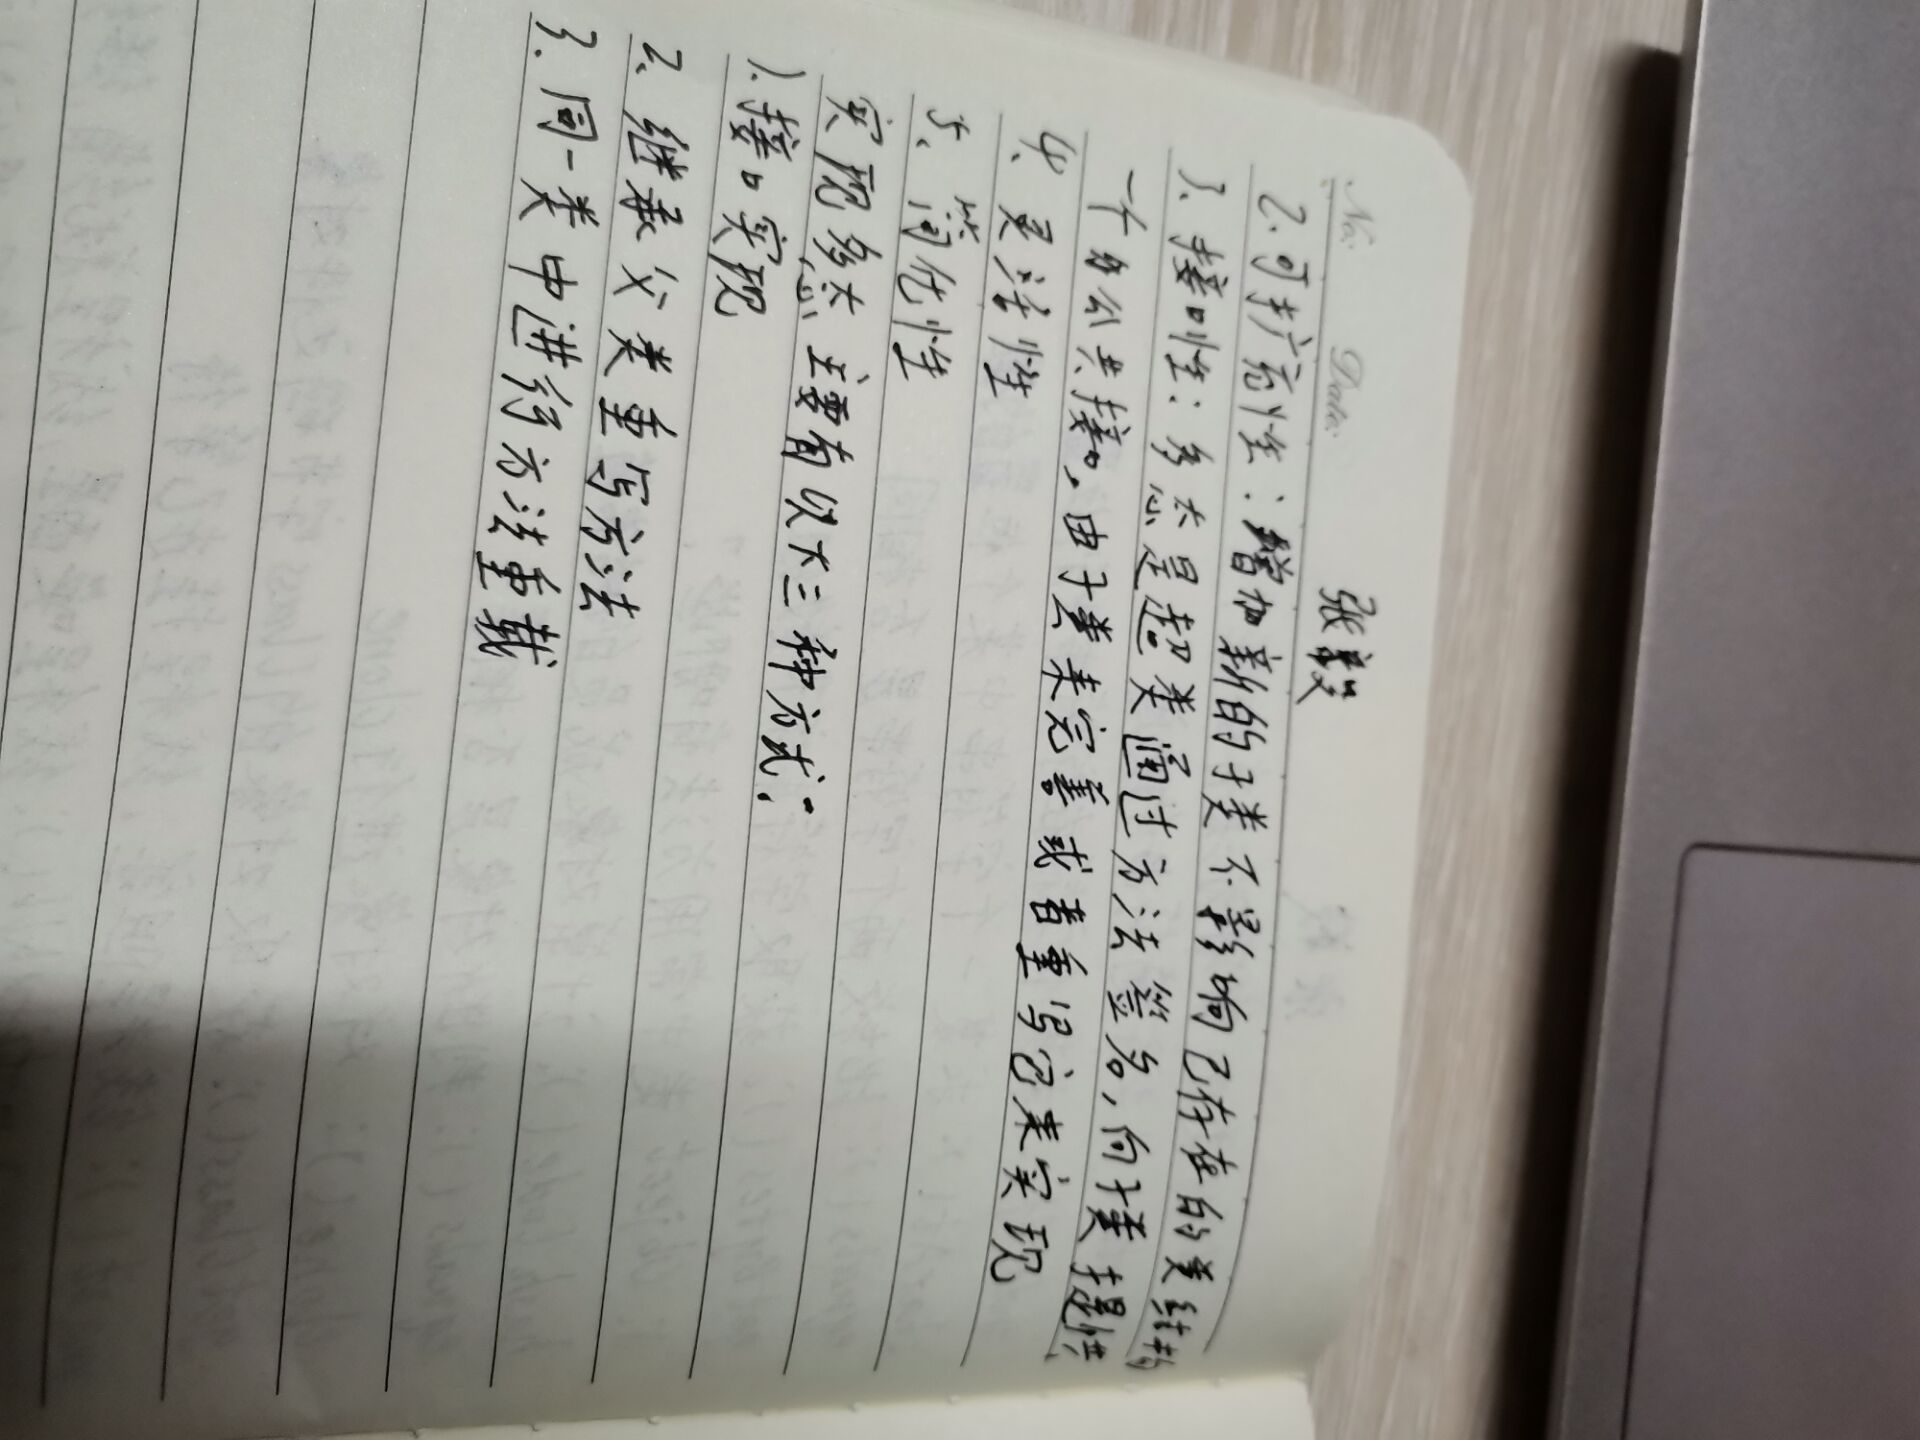 No:
Date:
张毅
2.可扩充性：增加新的子类不影响已存在的类结构
3.接口性：多态是超类通过方法签名，向子类提供
一个公共接口，由子类来完善或者重写它来实现
4、灵活性
5、简化性
实现多态主要有以下三种方式：
1.接口实现
2、继承父类重写方法
3.同一类中进行方法重载